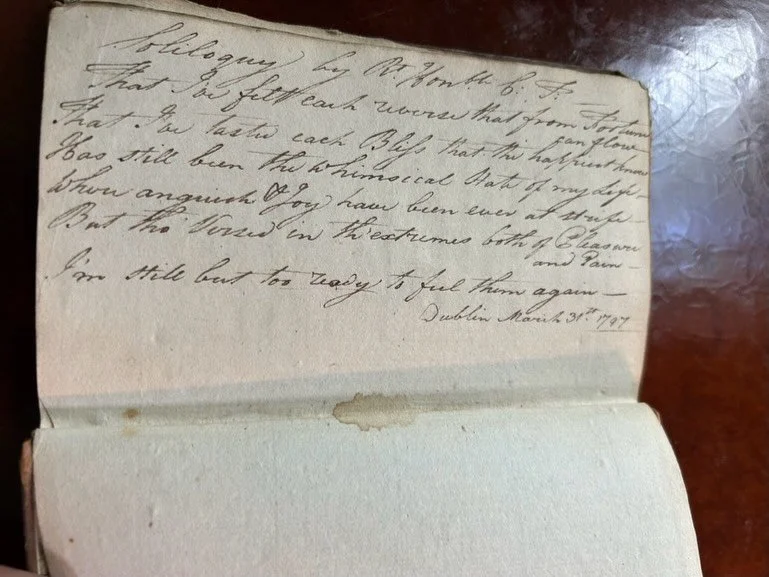 Soliloquy by Rt. Honble. C: F:
That I've felt each reverse that from Fortune
can flow
That I've tasted each Bliss that the happiest know
Has still been the whimsical State of my Life
Where anguish & Joy have been ever at strife
But tho' Versed in th'extremes both of Pleasure
and Pain
I'm still but too ready to feel them again
Dublin March 31st 1797